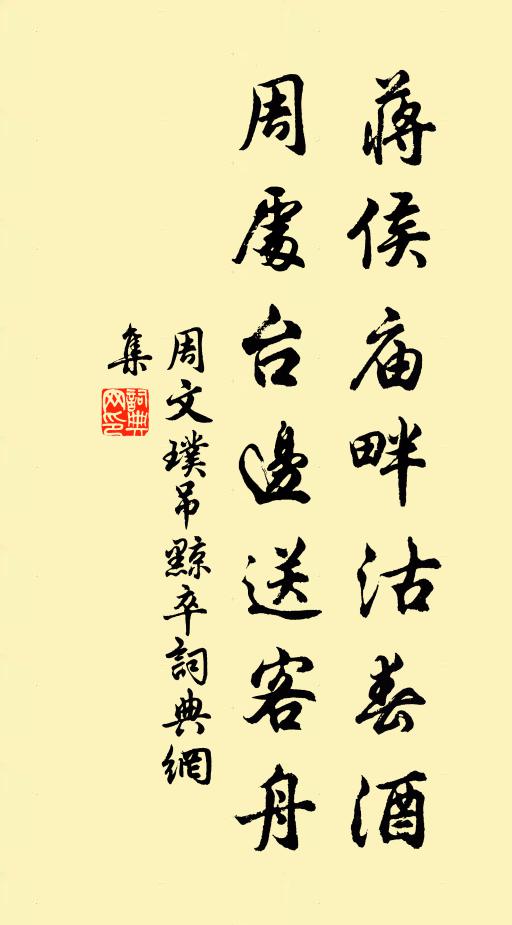 蔣侯庙畔沽春酒
周處台邊送客舟
周文璞吊黥卒詞典網
集
詞典网印